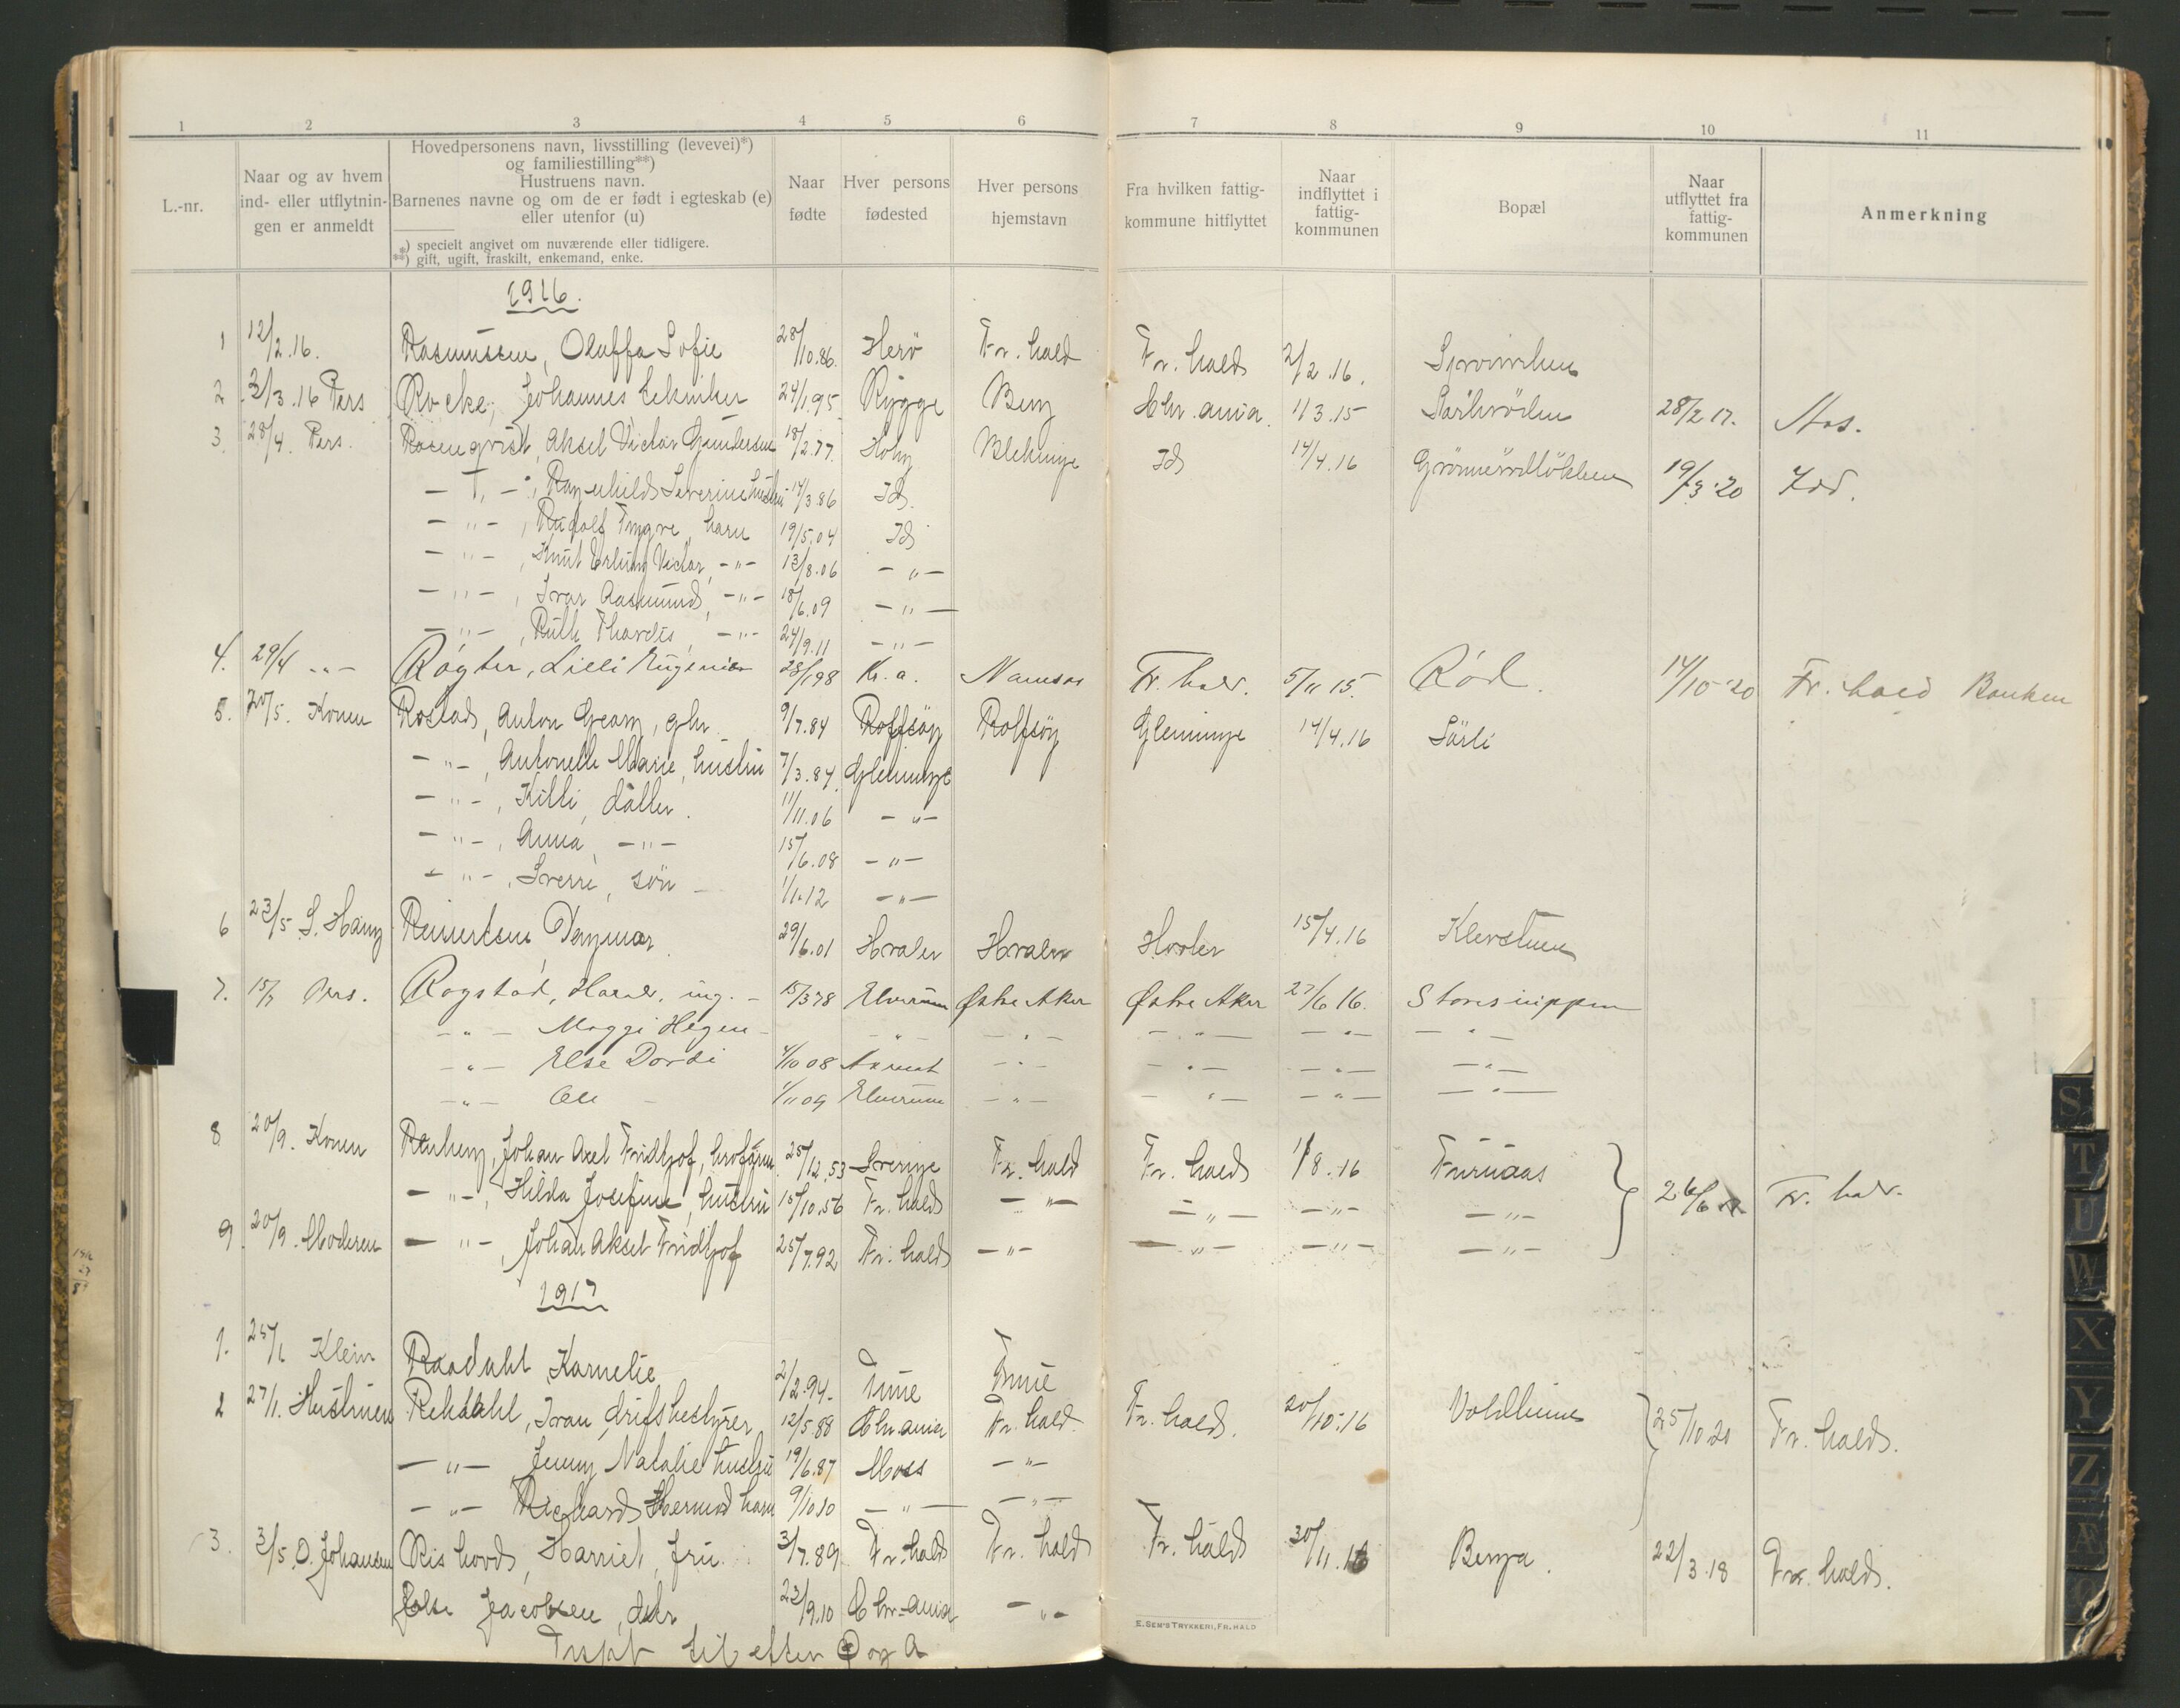 1 2 3 4 5 6 7 8 9 10 11
L.-nr.
Naar og av hvem ind- eller utflytnin-gen er anmeldt
Hovedpersonens navn, livsstilling (levevei)*)
og familiestilling**)
Hustruens navn.
Barnenes navne og om de er født i egteskab (e)
eller utenfor (u)
*) specielt angivet om nuværende eller tidligere.
**) gift, ugift, fraskilt, enkemand, enke.
Naar fødte
Hver persons fødested
Hver persons hjemstavn
Fra hvilken fattig-kommune hitflyttet
Naar indflyttet i fattig-kommunen
Bopæl
Naar utflyttet fra fattig-kommunen
Anmerkning
1916.
1 12/2.16. Rasmussen, Oluffa Sofie 28/10.86. Herö Fr.hald Fr.hald 2/2.16.
2 3/3.16 Pers Rocke, Johannes 24/1.95 Rygge Berg Chr.ania 1/3.15 28/2 17. Mos.
3. 28/4. Pers. Rosenqvist, Aksel Victor Gundersen 18/2.77. Blekinge Id 14/4.16 19/3-20 Idd.
- " -, Ragnhild Severine hustru 14/3.86 Id.
- " -, Rudolf Yngve, barn 19/5.04 Id
- " -, Knut Erling Victor, - " - 13/8.06 - " -
- " -, Ivar Aasmund, - " - 18/6.09 - " -
- " -, Ruth Thordis, - " - 24/9.11 - " -
4. 29/4 - " - Røgter, Lilli Eugenie 28/1 98 Kr.a. Namsos Fr.hald. 5/11 15. Rød. 14/10-20 Fr.hald Banken
5. 20/5. Konen Rostad, Anton Georg, gbr. 9/7.84 Rolfsøy Rolfsøy Glemminge 14/4.16 Sörli
- " -, Antonette Marie, hustru 7/3.84. Glemminge
- " -, Killi, datter. 11/11.06 - " -
- " -, Anna, - " - 15/6.08 - " -
- " -, Sverre, søn - 1/1.12 - " -
6 23/5 Reinertsen, Dagmar 29/6.01 Hvaler Hvaler Hvaler 15/4.16
7. 15/7 Pers. Rogstad, Harald, ing. - 15/3 78 Elverum Østre Aker Østre Aker 27/6 16. Storesnippen
- " - Maggi - - " - - " - - " - - " - - " -
- " - Else Dordi 4/10 08 - " - - " - - " - - " -
- " - Ole - 1/11 09 Elverum - " - - " - - " - - " -
8 20/9. Konen Johan Axel Fridtjof, 25/12.53 Sverige Fr.hald Fr.hald 1/8.16 Furuaas
- " -, Hilda Josefine, hustru 15/10.56 Fr.hald - " - - " - - " - - " - 26/6 Fr.hald.
9. 20/9. Moderen - " -, Johan Aksel Fridtjof 25/7.92 Fr.hald - " - - " - - " - - " -
1917
1. 25/1 Klein Raadahl Karnelie 2/2.94. Tune Tune
2 27/1. Hustruen Rehdahl, Ivan, driftsbestyrer 12/5.88 Chr.ania Fr.hald Fr.hald. 20/10.16 Voldheim 25/10 20 Fr.hald.
- " - Jenny Natalie hustru 19/6.87 Moss - " -
- " - Richard Hermod barn 9/10.10 - " - - " -
3. 3/5. O. Johansen Rishovd, Harriet, fru 3/7.89 Fr.hald Fr.hald Fr.hald 30/11.16 Berga. 22/3.18 Fr.hald.
Else Jacobsen, dtr 23/9.10 Chr.ania - " -
til efter Ø og A
E. SEM'S TRYKKERI, FR.HALD
S
T
U
W
X
Y
Z
Æ
Ø